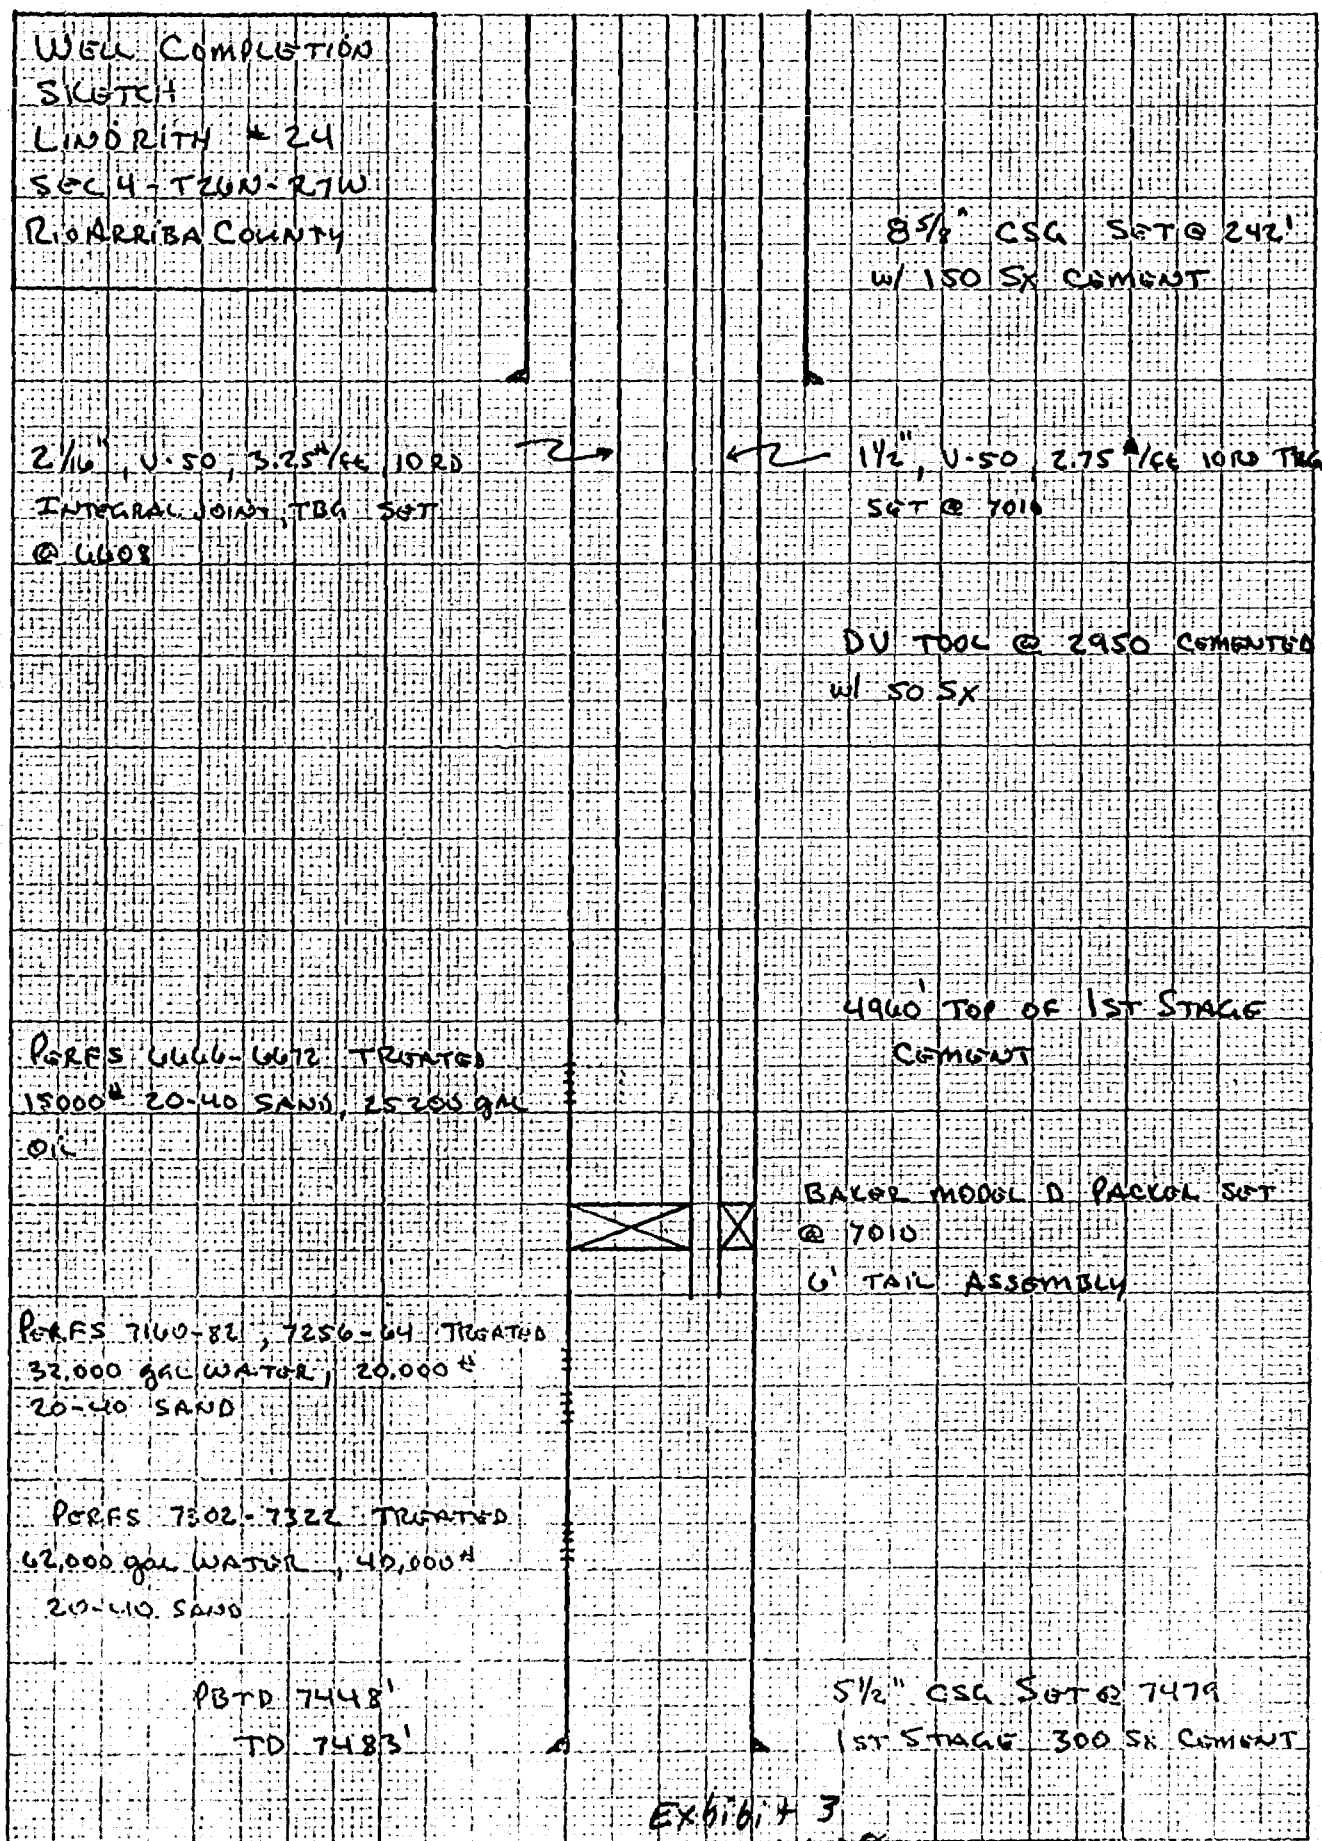 WELL COMPLETION
SKETCH
LINDRITH # 24
SEC 4 - T26N - R7W
RIO ARRIBA COUNTY
8 5/8" CSG SET @ 242'
W/ 150 SX CEMENT
2 1/16", V-50, 3.25#/ft, 10 RD
INTEGRAL JOINT, TBG SET
@ 6608
1 1/2", V-50, 2.75 #/ft 10 RD TBG
SET @ 7010
DV TOOL @ 2950 CEMENTED
W/ 50 SX
4960' TOP OF 1ST STAGE
CEMENT
PERFS 6646-6672 TREATED
15000# 20-40 SAND, 25200 gal
OIL
BAKER MODEL D PACKER SET
@ 7010
6' TAIL ASSEMBLY
PERFS 7160-82, 7256-64 TREATED
32,000 gal WATER, 20,000 #
20-40 SAND
PERFS 7302-7322 TREATED
62,000 gal WATER, 40,000#
20-40 SAND
PBTD 7448'
TD 7483'
5 1/2" CSG SET @ 7479
1ST STAGE 300 SX CEMENT
Exhibit 3